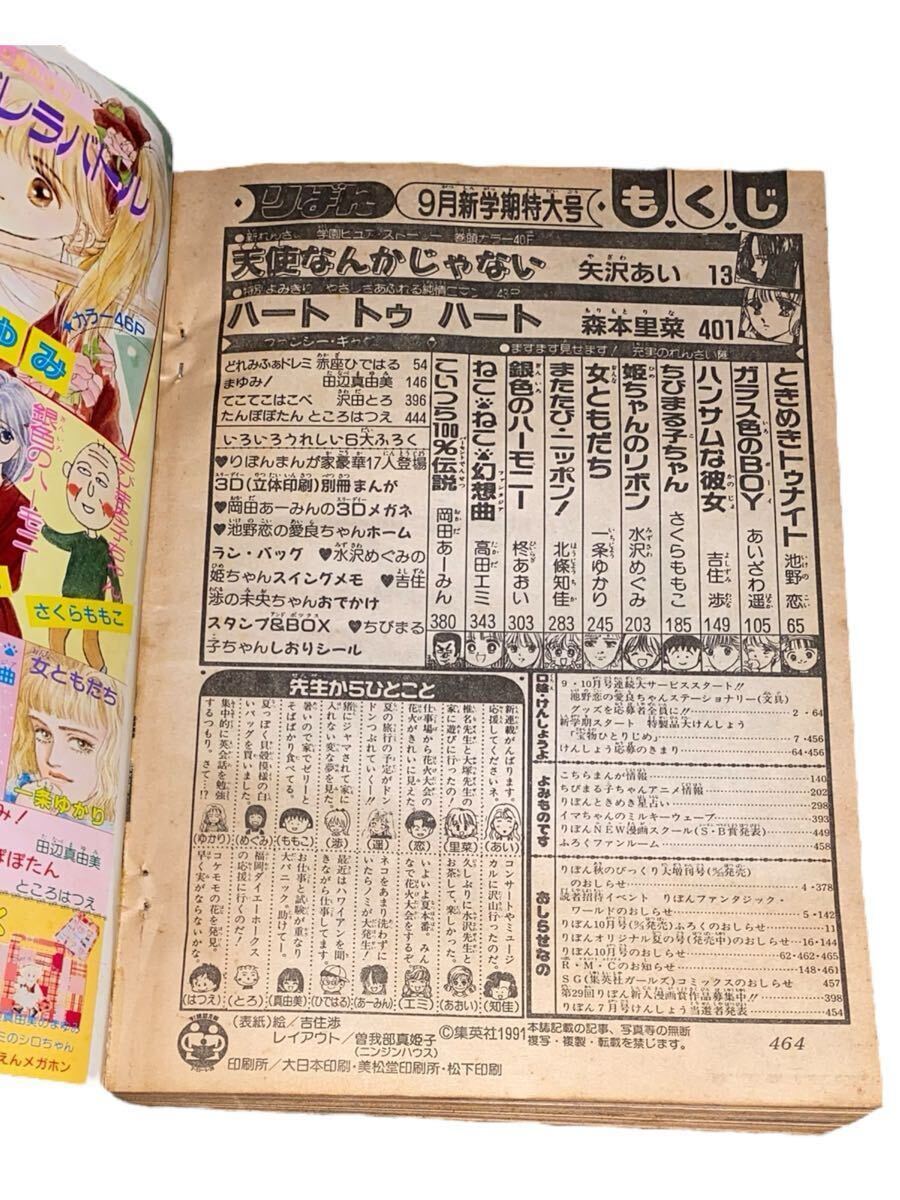 りぼん 9月新学期特大号 もくじ
●新れんさい 学園ピュア・ストーリー 巻頭カラー40P
天使なんかじゃない 矢沢あい 13
●特別よみきり やさしさあふれる純情ロマン 43P
ハート トゥ ハート 森本里菜 401
●ますます見せます! 充実のれんさい陣
ときめきトゥナイト 池野 恋 65
ガラス色のBOY あいざわ遥 105
ハンサムな彼女 吉住 渉 149
ちびまる子ちゃん さくらももこ 185
姫ちゃんのリボン 水沢めぐみ 203
女ともだち 一条ゆかり 245
またたび・ニッポン! 北條知佳 283
銀色のハーモニー 柊あおい 303
ねこ・ねこ・幻想曲 高田エミ 343
こいつら100%伝説 岡田あーみん 380
ファンシー・ギャグ
どれみふぁドレミ 赤座ひではる 54
まゆみ! 田辺真由美 146
てこてこはこべ 沢田とろ 396
たんぽぽたん ところはつえ 444
いろいろうれしい6大ふろく
♥りぼんまんが家豪華17人登場
3D(立体印刷)別冊まんが
♥岡田あーみんの3Dメガネ
♥池野恋の愛良ちゃんホーム
ラン・バッグ ♥水沢めぐみの
姫ちゃんスイングメモ ♥吉住
渉の未央ちゃんおでかけ
スタンプ&BOX ♥ちびまる
子ちゃんしおりシール
先生からひとこと
新連載がんばります。
応援してくださいネ。
(あい)
椎名先生と大塚先生の
家に遊びに行ったの。
(里菜)
仕事場から花火大会の
花火がきれいに見えた。
(恋)
夏の旅行の予定がドン
ドンつぶれていく!!
(遥)
猫にジャマされて家に
入れない変な夢を見た。
(渉)
暑いので家でゼリーと
そばばかり食べてる。
(ももこ)
夏っぽく貝殻模様の白
いバッグを買いました。
(めぐみ)
集中的に英会話を勉強
するつもり。さて…!?
(ゆかり)
コンサートやミュージ
カルに沢山行ったのだ。
(知佳)
久しぶりに水沢先生と
お茶して、楽しかった。
(あおい)
いよいよ夏本番。みん
なで花火大会をするぞ。
(エミ)
ネコをあまり洗わずに
いたらノミが大発生!
(あーみん)
最近はハワイアンを聞
きながら仕事してます。
(ひではる)
お仕事と試験が重なり
大パニック。助けてー。
(真由美)
福岡ダイエーホークス
の応援に行くのだ!
(とろ)
コケモモの花を発見。
早く実がならないかな。
(はつえ)
口絵・けんしょうよ
9・10月号連続大サービススタート!!
池野恋の愛良ちゃんステーショナリー(文具)
グッズを応募者全員に!! 2・64
新学期スタート 特製品大けんしょう
「宝物ひとりじめ」 7・456
けんしょう応募のきまり 64・456
よみものです
こちらまんが情報 140
ちびまる子ちゃんアニメ情報 202
りぼんときめき星占い 298
イマちゃんのミルキーウェーブ 393
りぼんNEW漫画スクール(S・B賞発表) 449
ふろくファンルーム 458
おしらせなの
りぼん秋のびっくり大増刊号
のおしらせ 4・378
読者招待イベント りぼんファンタジック・
ワールドのおしらせ 5・142
りぼん10月号 ふろくのおしらせ 11
りぼんオリジナル夏の号(発売中)のおしらせ 16・144
りぼん10月号のおしらせ 62・462・465
R・M・Cのお知らせ 148・461
SG(集英社ガールズ)コミックスのおしらせ 457
第29回りぼん新人漫画賞作品募集中!! 398
りぼん7月号けんしょう当選者発表 454
(表紙)絵/吉住渉
レイアウト/曽我部真姫子
(ニンジンハウス)
©集英社1991
本誌記載の記事、写真等の無断
複写・複製・転載を禁じます。
印刷所/大日本印刷・美松堂印刷所・松下印刷
464
レラバトル
★カラー46P
ゆみ
銀色のハーモニー
さくらももこ
女ともだち
一条ゆかり
曲
み!
田辺真由美
ぽぽたん
ところはつえ
ミのシロちゃん
えんメガホン